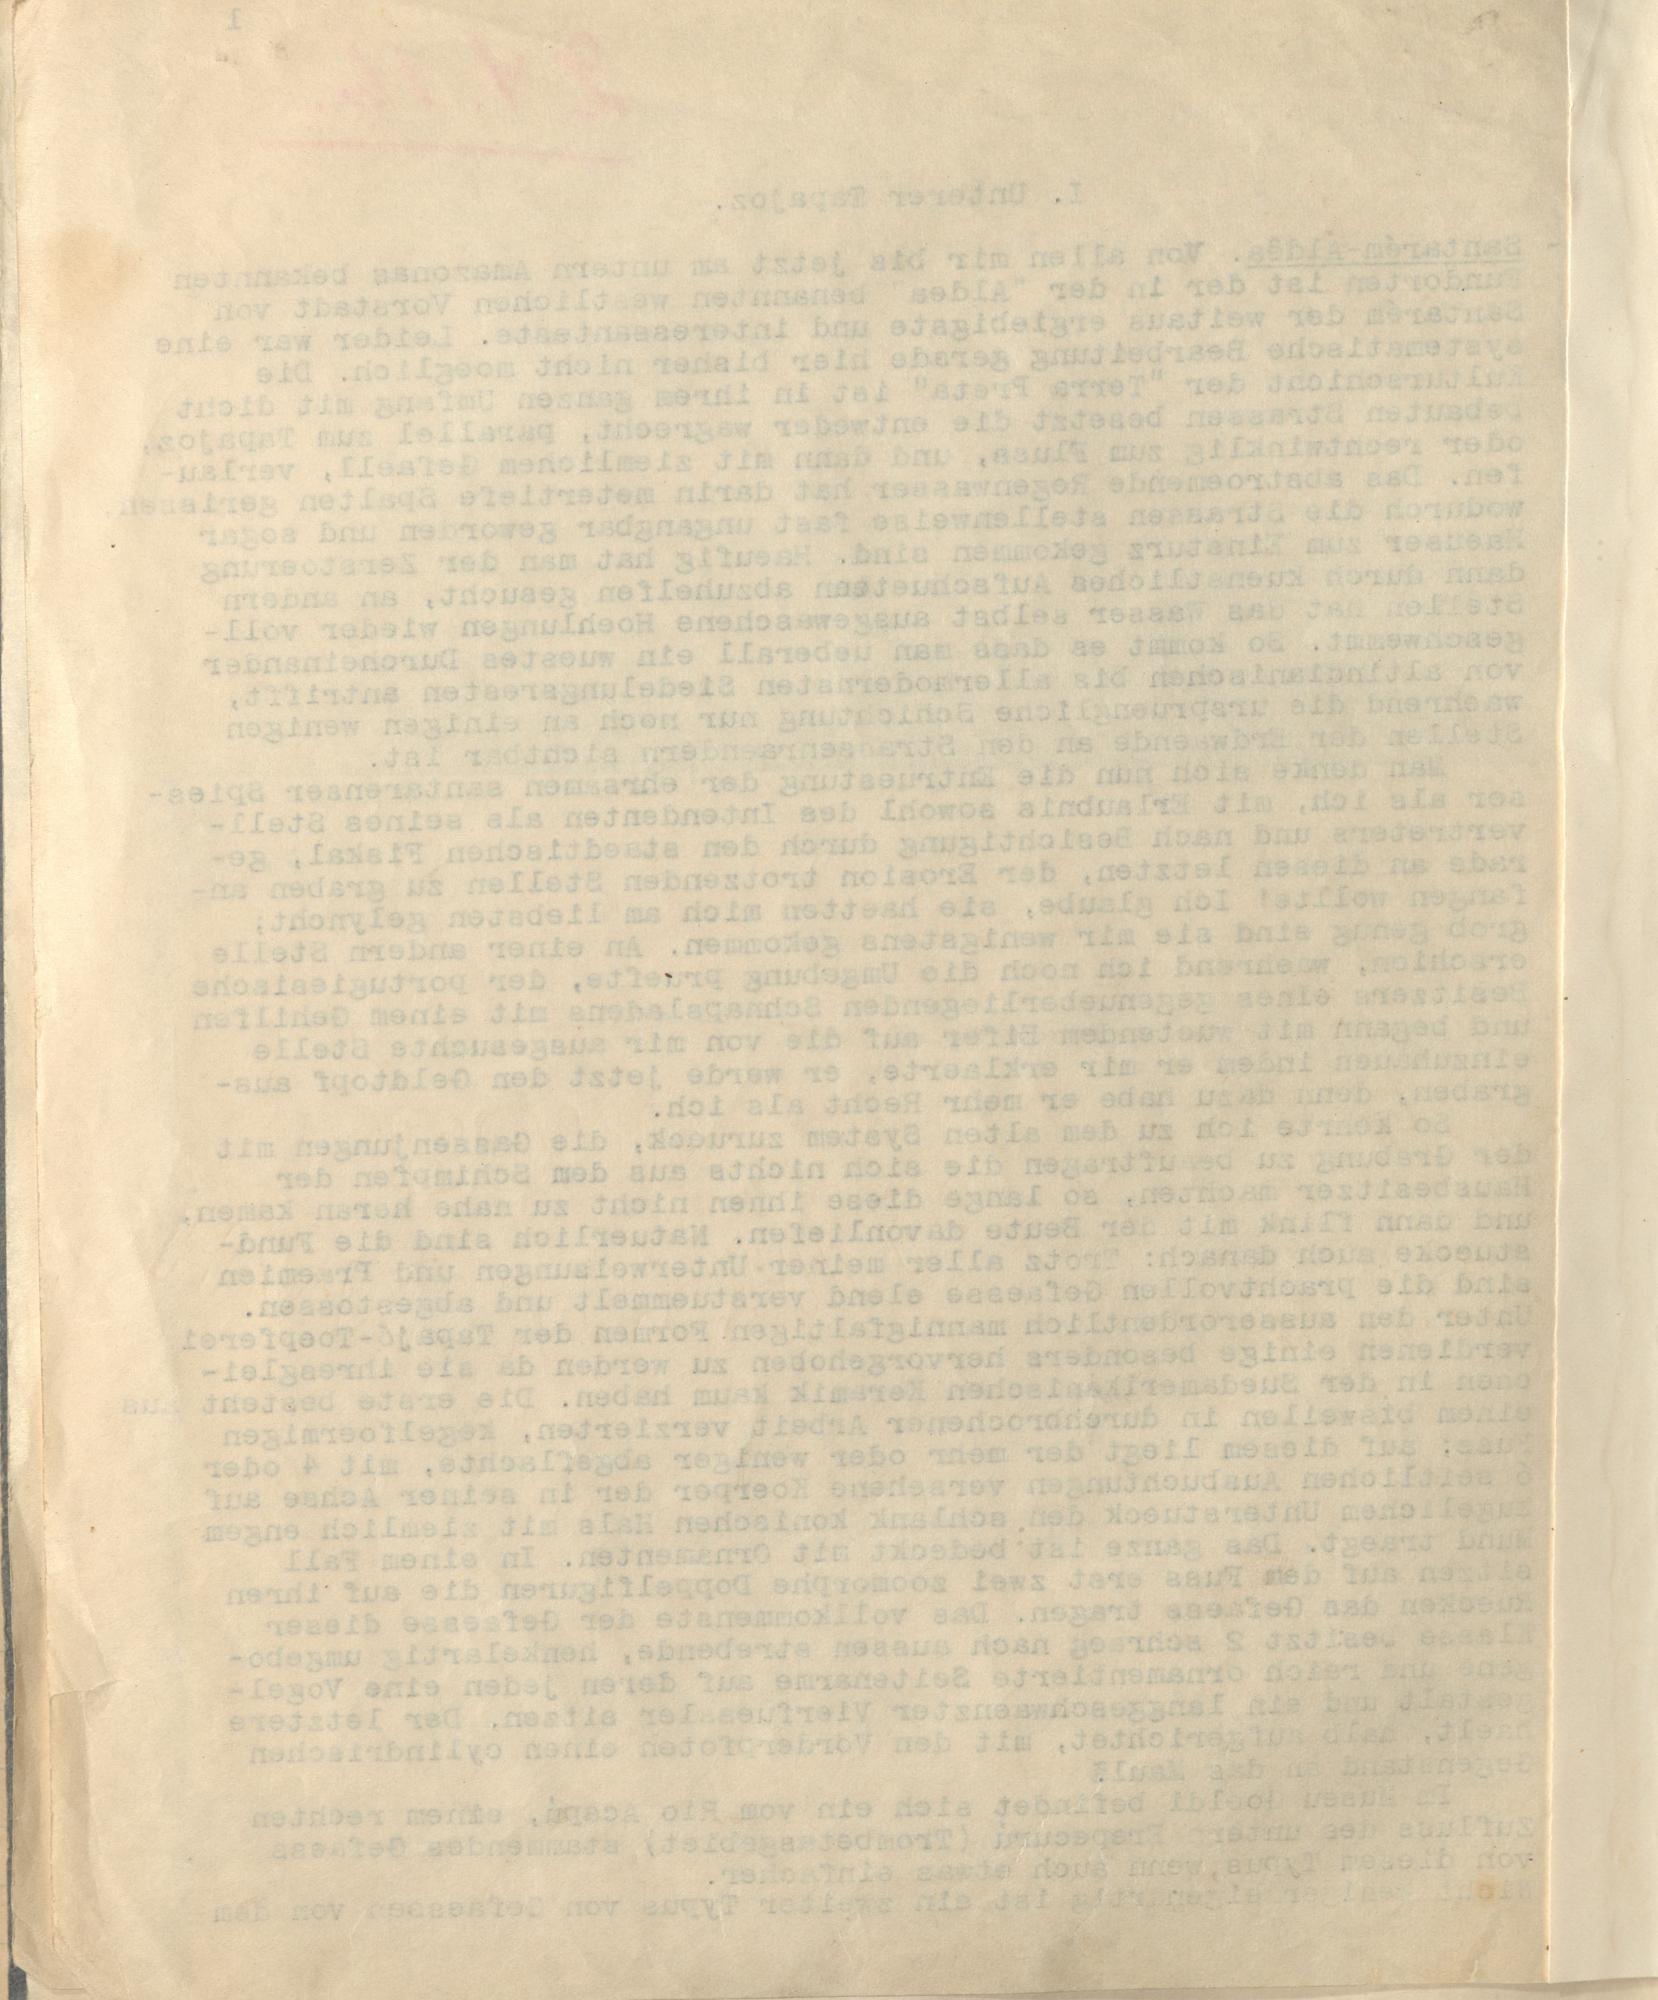 1
I. Unterer Tapajoz.
- Santarém-Aldêa. Von allen mir bis jetzt am untern Amazonas bekannten
Fundorten ist der in der "Aldea" benannten westlichen Vorstadt von
Santarém der weitaus ergiebigste und interessanteste. Leider war eine
systematische Bearbeitung gerade hier bisher nicht moeglich. Die
Kulturschicht der "Terra Preta" ist in ihrem ganzen Umfang mit dicht
bebauten Strassen besetzt die entweder wagrecht, parallel zum Tapajoz,
oder rechtwinklig zum Fluss, und dann mit ziemlichem Gefaell, verlau-
fen. Das abstroemende Regenwasser hat darin metertiefe Spalten gerissen,
wodurch die Strassen stellenweise fast ungangbar geworden und sogar
Haeuser zum Einsturz gekommen sind. Haeufig hat man der Zerstoerung
dann durch kuenstliches Aufschuetten abzuhelfen gesucht, an andern
Stellen hat das Wasser selbst ausgewaschene Hoehlungen wieder voll-
geschwemmt. So kommt es dass man ueberall ein wuestes Durcheinander
von altindianischen bis allermodernsten Siedelungsresten antrifft,
waehrend die urspruengliche Schichtung nur noch an einigen wenigen
Stellen der Erdwaende an den Strassenraendern sichtbar ist.
Man denke sich nun die Entruestung der ehrsamen santarenser Spies-
ser als ich, mit Erlaubnis sowohl des Intendenten als seines Stell-
vertreters und nach Besichtigung durch den staedtischen Fiskal, ge-
rade an diesen letzten, der Erosion trotzenden Stellen zu graben an-
fangen wollte! Ich glaube, sie haetten mich am liebsten gelyncht;
grob genug sind sie mir wenigstens gekommen. An einer andern Stelle
erschien, waehrend ich noch die Umgebung pruefte, der portugiesische
Besitzers eines gegenueberliegenden Schnapsladens mit einem Gehilfen
und begann mit wuetendem Eifer auf die von mir ausgesuchte Stelle
einzuhauen indem er mir erklaerte, er werde jetzt den Geldtopf aus-
graben, denn dazu habe er mehr Recht als ich.
So kehrte ich zu dem alten System zurueck, die Gassenjungen mit
der Grabung zu beauftragen die sich nichts aus dem Schimpfen der
Hausbesitzer machten, so lange diese ihnen nicht zu nahe heran kamen,
und dann flink mit der Beute davonliefen. Natuerlich sind die Fund-
stuecke auch danach: Trotz aller meiner Unterweisungen und Praemien
sind die prachtvollen Gefaesse elend verstuemmelt und abgestossen.
Unter den ausserordentlich mannigfaltigen Formen der Tapajó-Toepferei
verdienen einige besonders hervorgehoben zu werden da sie ihresglei-
chen in der Suedamerikanischen Keramik kaum haben. Die erste besteht aus
einem bisweilen in durchbrochener Arbeit verzierten, kegelfoermigen
Fuss; auf diesem liegt der mehr oder weniger abgeflachte, mit 4 oder
6 seitlichen Ausbuchtungen versehene Koerper der in seiner Achse auf
kugelichem Unterstueck den schlank konischen Hals mit ziemlich engem
Mund traegt. Das ganze ist bedeckt mit Ornamenten. In einem Fall
sitzen auf dem Fuss erst zwei zoomorphe Doppelfiguren die auf ihren
Ruecken das Gefaess tragen. Das vollkommenste der Gefaesse dieser
Klasse besitzt 2 schraeg nach aussen strebende, henkelartig umgebo-
gene und reich ornamentierte Seitenarme auf deren jeden eine Vogel-
gestalt und ein langgeschwaenzter Vierfuessler sitzen. Der letztere
haelt, halb aufgerichtet, mit den Vorderpfoten einen cylindrischen
Gegenstand an das Maul.
Im Museu Goeldi befindet sich ein vom Rio Acapú, einem rechten
Zufluss des untern Erepecurú (Trombetasgebiet) stammendes Gefaess
von diesem Typus, wenn auch etwas einfacher.
Nicht weniger eigenartig ist ein zweiter Typus von Gefaessen von dem